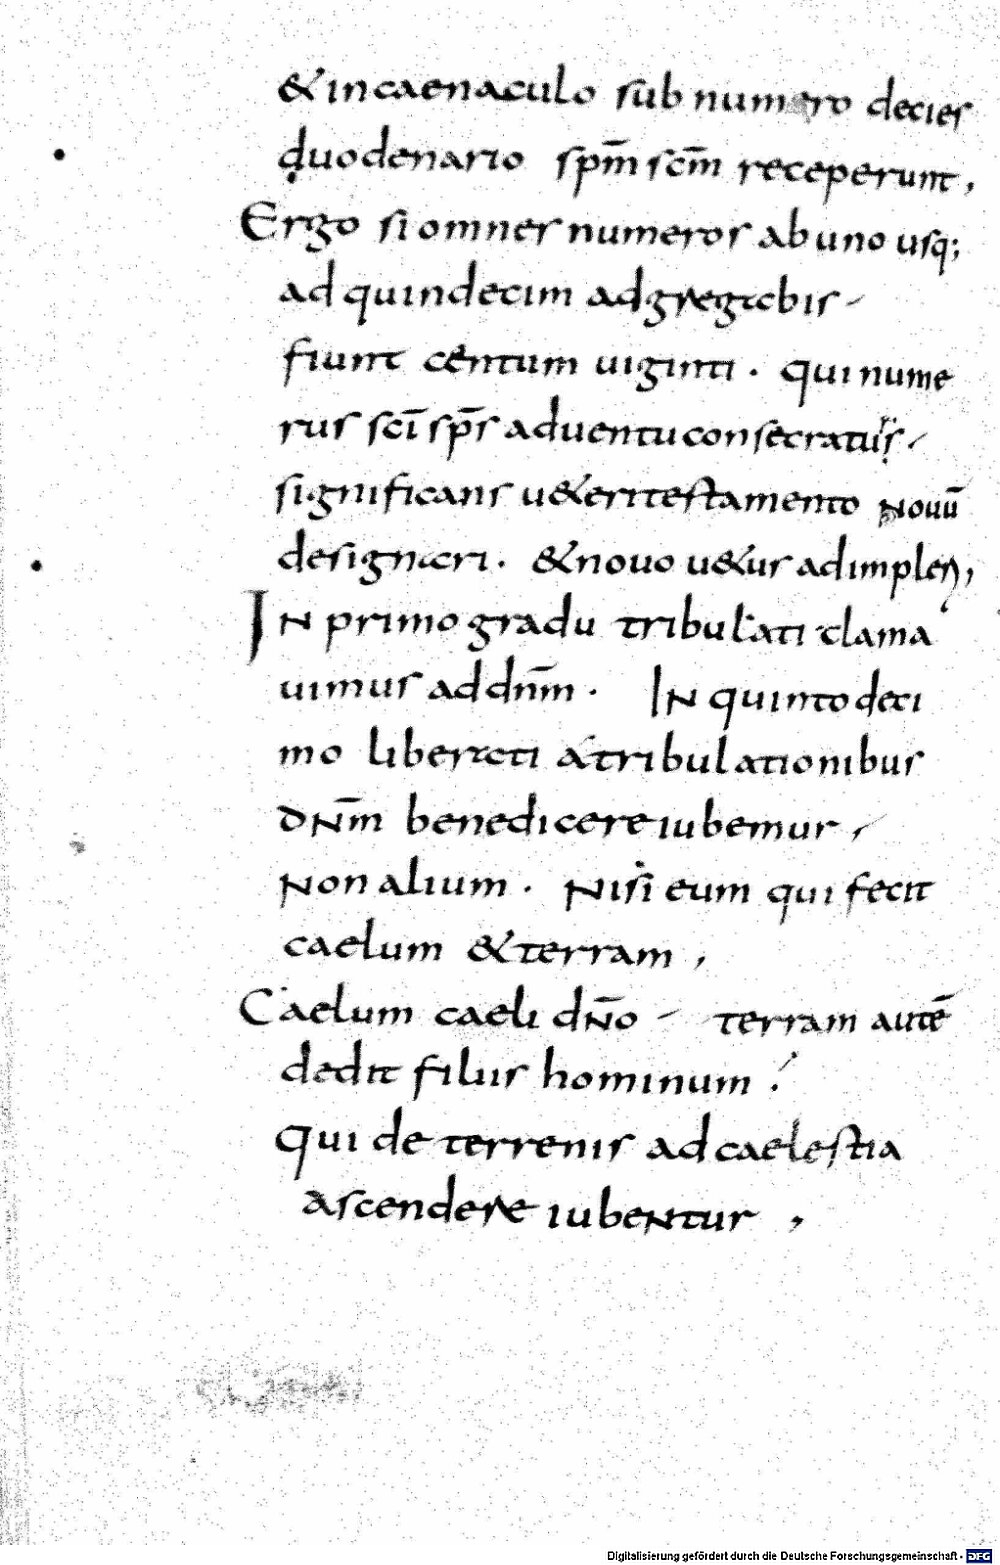 & in caenaculo sub numero decies
duodenario spm̄ scm̄ receperunt,
Ergo si omnes numeros ab uno usq;
ad quindecim adgregabis
fiunt centum uiginti · qui nume
rus scī sps̄ aduentu consecratus
significans u&eri testamento nouū
designari · & nouo u&us adimpleri,
In primo gradu tribulati clama
uimus ad dnm̄ · In quinto deci
mo liberati a tribulationibus
dnm̄ benedicere iubemur,
Non alium · Nisi eum qui fecit
caelum & terram,
Caelum caeli dn̄o terram autē
dedit filiis hominum ·
Qui de terrenis ad caelestia
ascendere iubentur,
Digitalisierung gefördert durch die Deutsche Forschungsgemeinschaft - DFG